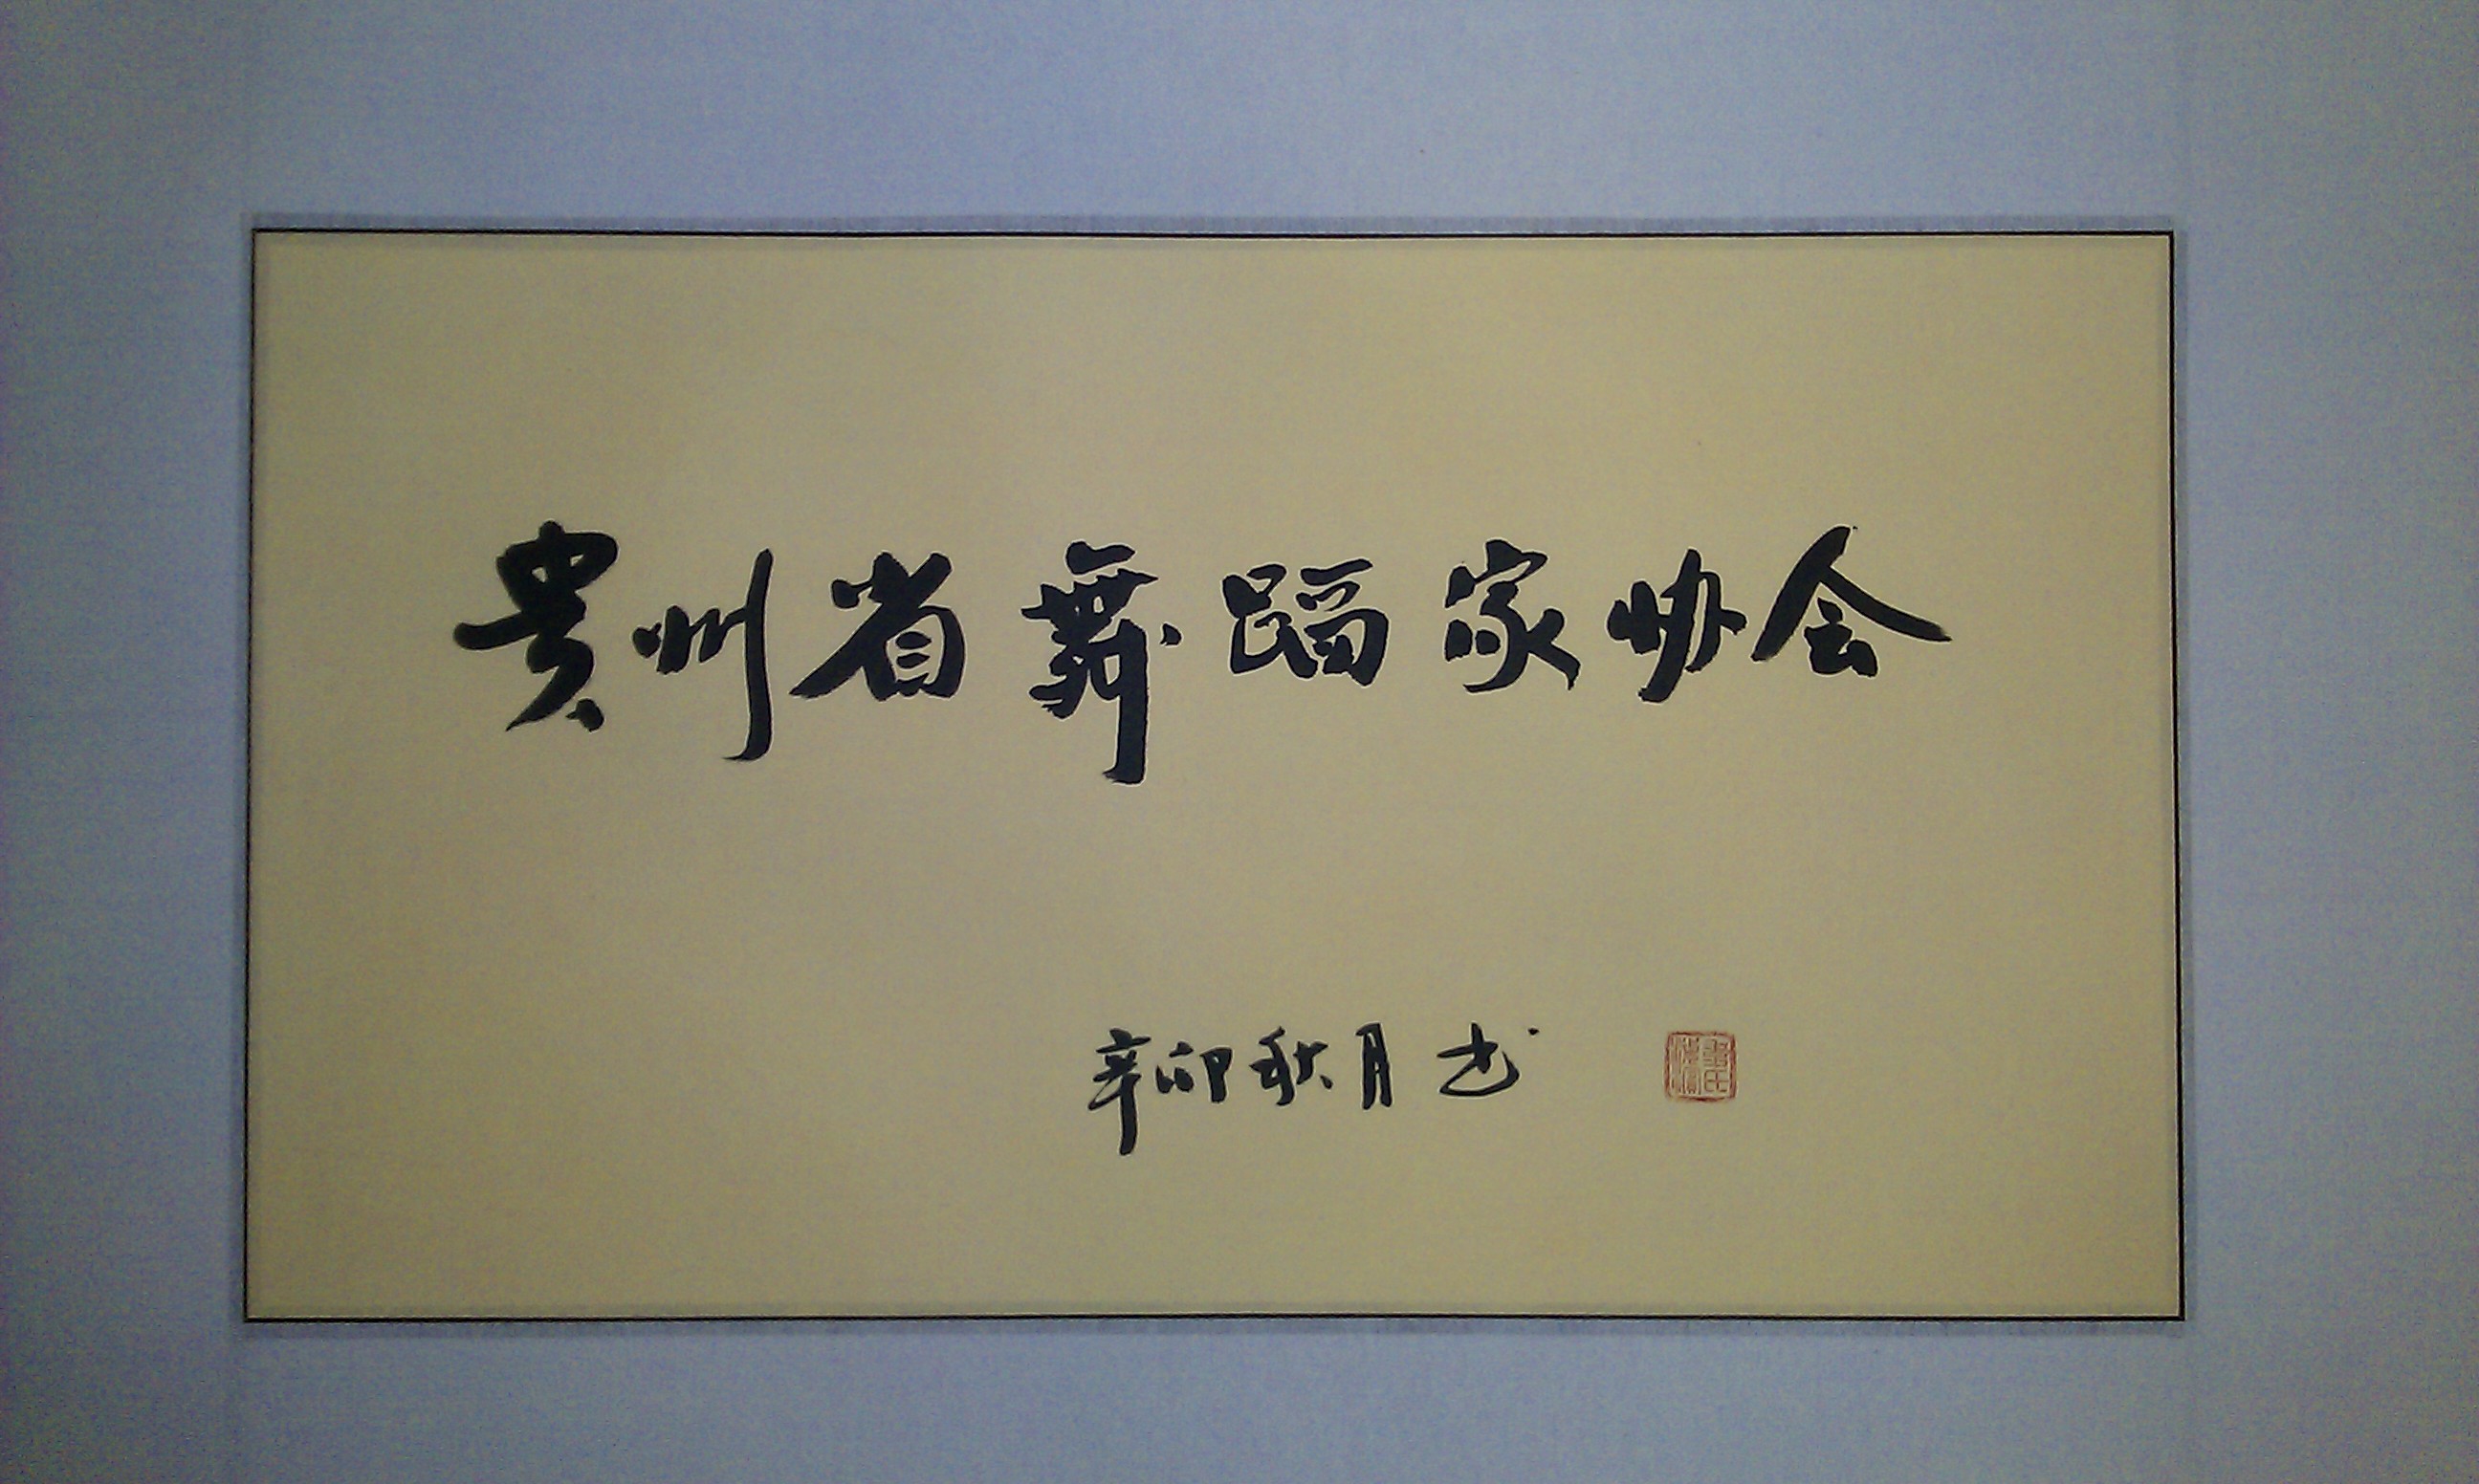 贵州省舞蹈家协会
辛卯秋月书